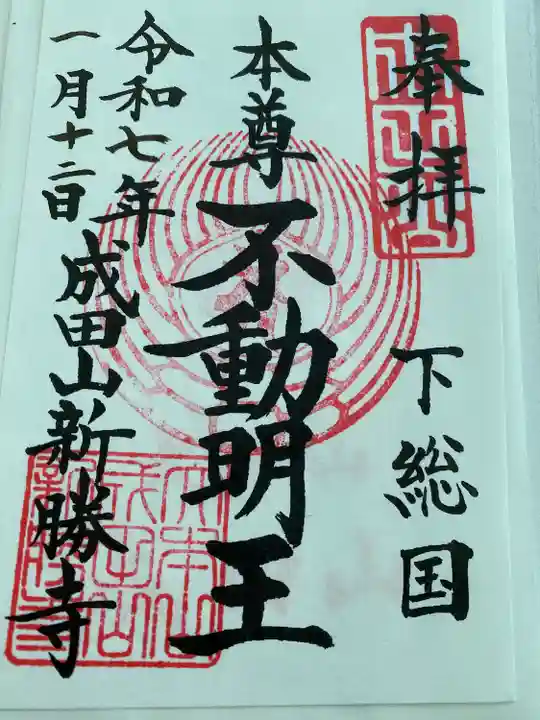 奉拝
下総国
本尊不動明王
令和七年
一月十二日
成田山新勝寺